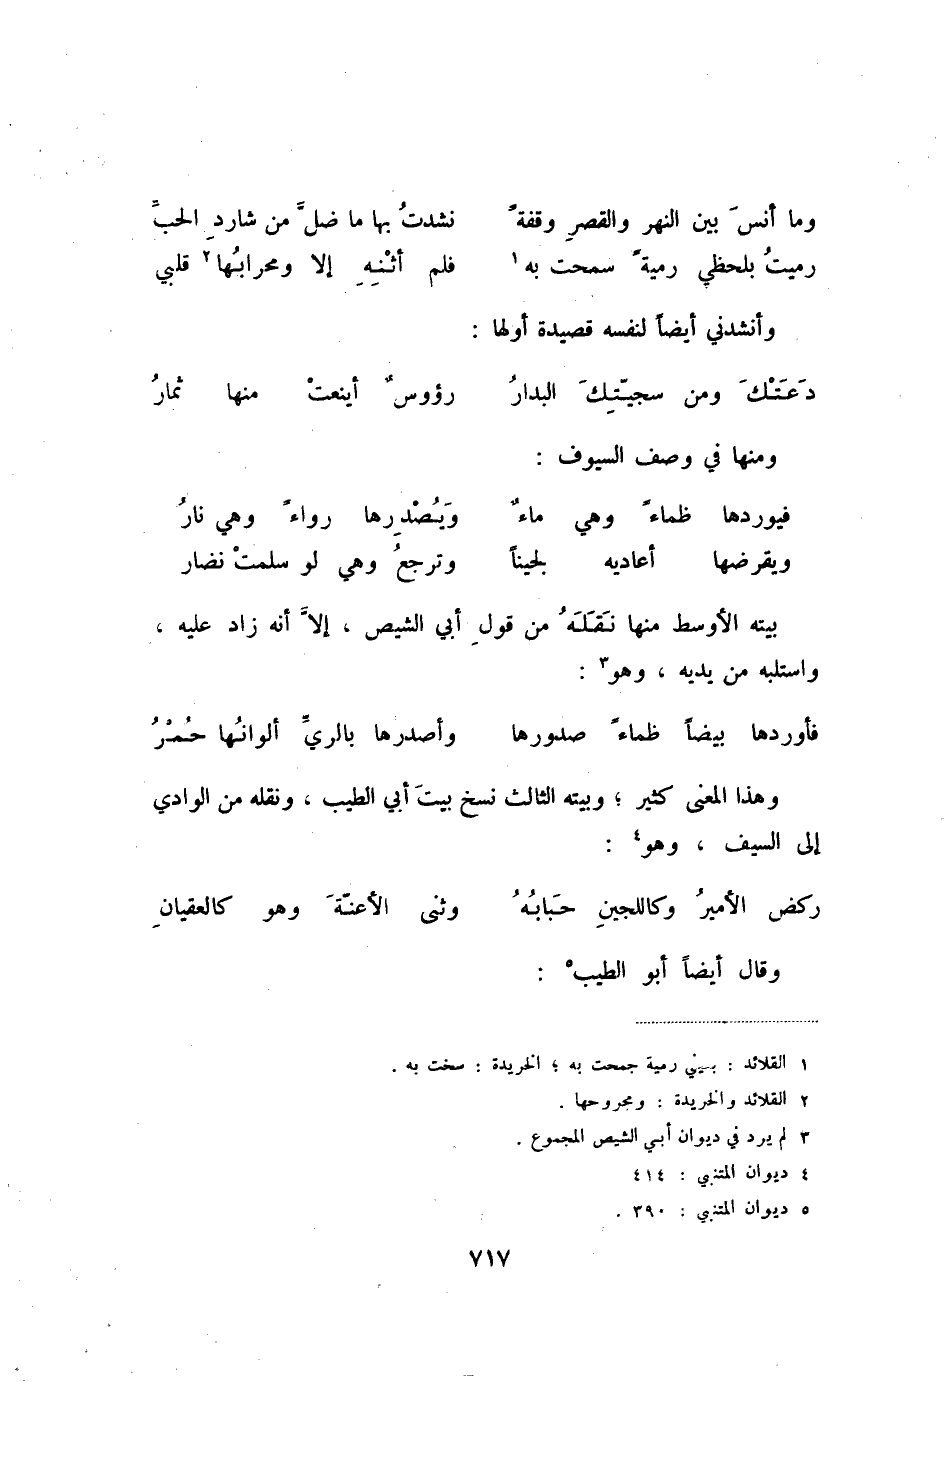 وما أنسَ بين النهر والقصرِ وقفةً نشدتُ بها ما ضلَّ من شاردِ الحبِّ
رميتُ بلحظي رميةً سمحت به١ فلم أثْنِهِ إلا ومحرابُها٢ قلبي
وأنشدني أيضاً لنفسه قصيدة أولها :
دَعَتْكَ ومن سجيّتِكَ البدارُ رؤوسٌ أينعتْ منها ثمارُ
ومنها في وصف السيوف :
فيوردها ظماءً وهي ماءٌ ويَُصْدِرها رواءً وهي نارُ
ويقرضها أعاديه لجيناً وترجعُ وهي لو سلمتْ نضار
بيته الأوسط منها نَقَلَهُ من قولِ أبي الشيص ، إلاَّ أنه زاد عليه ،
واستلبه من يديه ، وهو٣ :
فأوردها بيضاً ظماءً صدورها وأصدرها بالريِّ ألوانُها حُمْرُ
وهذا المعنى كثير ؛ وبيته الثالث نسخ بيتَ أبي الطيب ، ونقله من الوادي
إلى السيف ، وهو٤ :
ركض الأميرُ وكاللجينِ حَبابُهُ وثنى الأعنّةَ وهو كالعقيانِ
وقال أيضاً أبو الطيب٥ :
١ القلائد : بسيني رمية جمحت به ؛ الخريدة : سخت به .
٢ القلائد والخريدة : ومجروحها .
٣ لم يرد في ديوان أبي الشيص المجموع .
٤ ديوان المتنبي : ٤١٤
٥ ديوان المتنبي : ٣٩٠ .
٧١٧